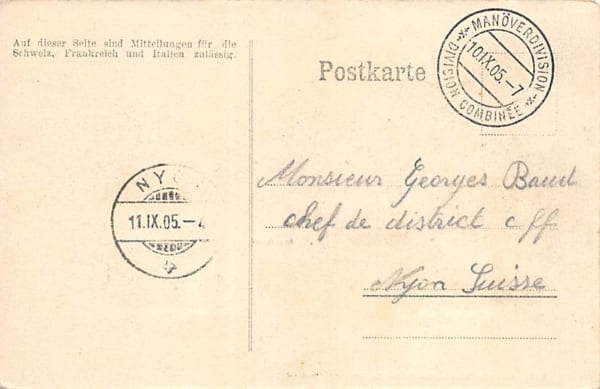 Auf dieser Seite sind Mitteilungen für die
Schweiz, Frankreich und Italien zulässig.
Postkarte
MANÖVERDIVISION
10.IX.05.–7
DIVISION COMBINÉE
NYON
11.IX.05.–
Monsieur Georges Baud
chef de district cff
Nyon Suisse